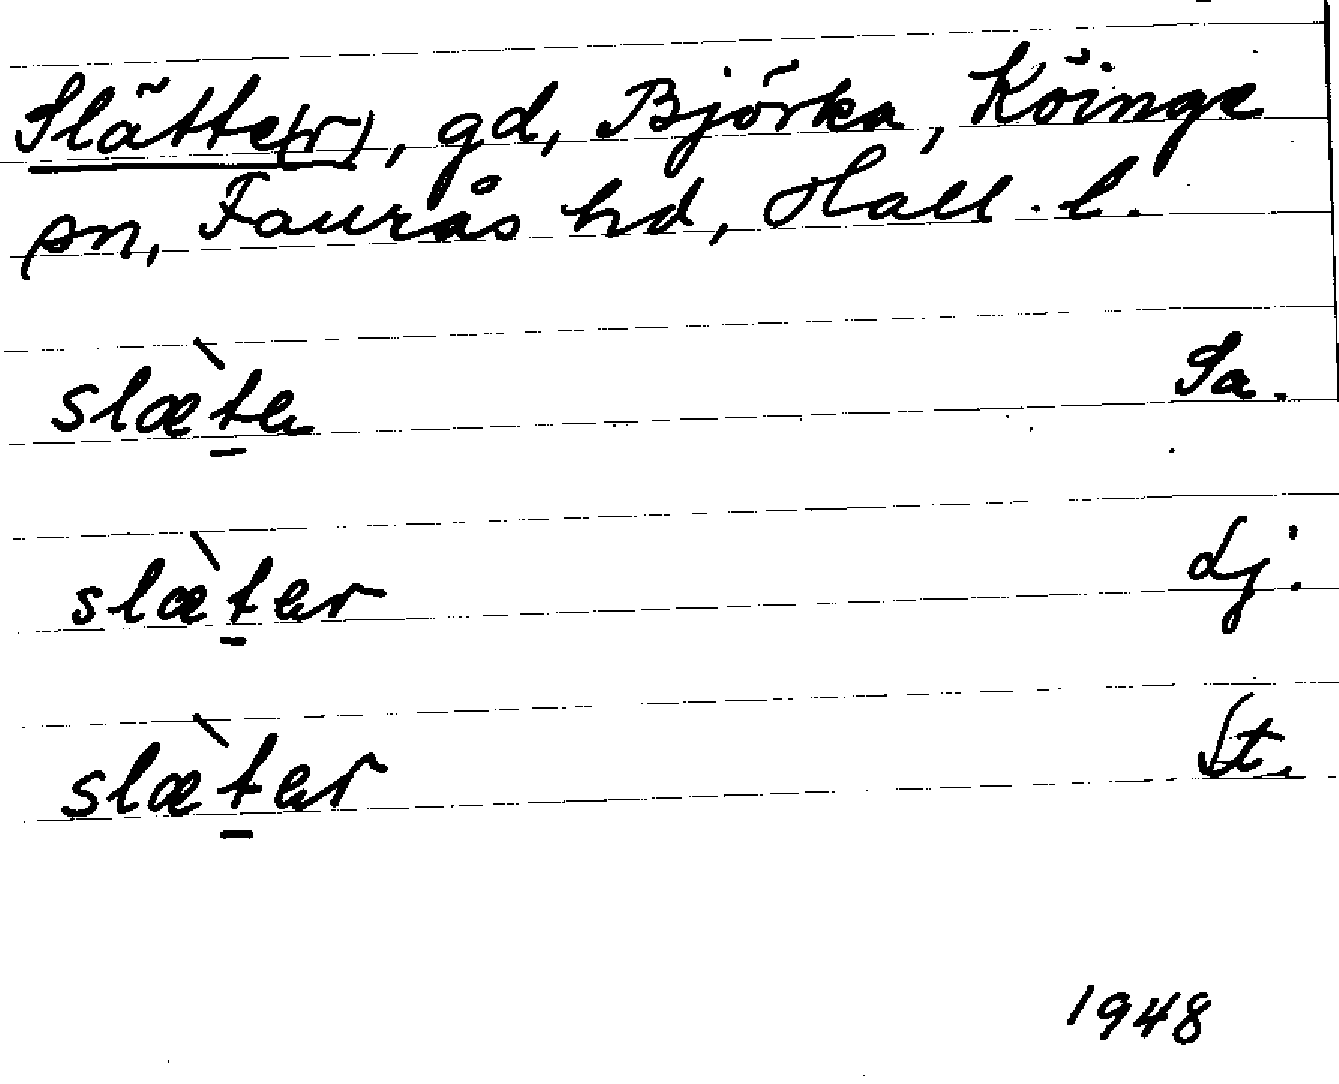 Slätte(r), gd, Björka, Köinge
sn, Faurås hd, Hall. l.
slæ̀te Sa.
slæ̀ter Lj.
slæ̀ter St.
1948